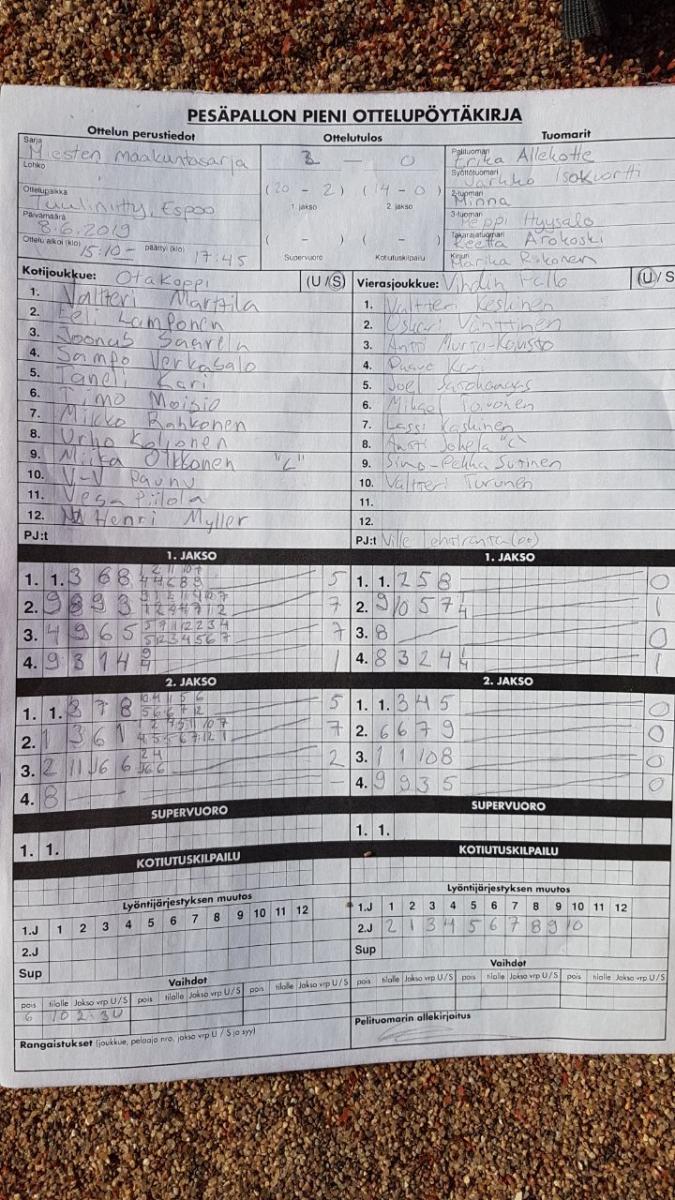 PESÄPALLON PIENI OTTELUPÖYTÄKIRJA
Ottelun perustiedot
Ottelutulos
Tuomarit
Sarja
Miesten maakuntasarja
Lohko
Ottelupaikka
Tuuliniitty, Espoo
Päivämäärä
8.6.2019
Ottelu alkoi (klo) 15:10- päättyi (klo) 17:45
2 — 0
(20 - 2) (14 - 0)
1 jakso 2. jakso
( - ) ( - )
Supervuoro Kotiutuskilpailu
Pelituomari
Erika Allekotte
Syöttötuomari
Jarkko Isokuortti
2-tuomari
Minna
3-tuomari
Peppi Hyysalo
Takarajatuomari
Reetta Arokoski
Kirjuri
Marika Riikonen
Kotijoukkue: Otakoppi (U/S)
1. Valtteri Marttila
2. Eeli Lamponen
3. Joonas Saarela
4. Sampo Verkasalo
5. Taneli Kari
6. Timo Moisio
7. Mikko Rahkonen
8. Urho Koljonen
9. Miika Oikkonen "C"
10. V-V Paunu
11. Vesa Piilola
12. Henri Myller
PJ:t
Vierasjoukkue: Vihdin Pallo (U/S
1. Valtteri Keskinen
2. Oskari Vänttinen
3. Antti Murto-Koivisto
4.
5. Joel
6. Mikael Toivonen
7. Lassi Koskinen
8. Antti Jokela "C"
9. Simo-Pekka Sutinen
10. Valtteri Turunen
11.
12.
PJ:t Ville
1. JAKSO
1. 1. 3 6 8 5
2. 9 8 9 3 7
3. 4 9 6 5 7
4. 9 3 1 4 1
2. JAKSO
1. 1. 3 7 8 5
2. 1 3 6 1 7
3. 2 11 6 6 2
4. 8 –
SUPERVUORO
1. 1.
KOTIUTUSKILPAILU
Lyöntijärjestyksen muutos
1.J 1 2 3 4 5 6 7 8 9 10 11 12
2.J
Sup
Vaihdot
pois tilalle Jakso vrp U/S pois tilalle Jakso vrp U/S pois tilalle Jakso vrp U/S
6 10 2. 3U
Rangaistukset (joukkue, pelaaja nro, jakso vrp U / S ja syy)
1. JAKSO
1. 1. 2 5 8 0
2. 9 10 5 7 1
3. 8 0
4. 8 3 2 4 1
2. JAKSO
1. 1. 3 4 5 0
2. 6 6 7 9 0
3. 1 1 10 8 0
4. 9 9 3 5 0
SUPERVUORO
1. 1.
KOTIUTUSKILPAILU
Lyöntijärjestyksen muutos
1.J 1 2 3 4 5 6 7 8 9 10 11 12
2.J 2 1 3 4 5 6 7 8 9 10
Sup
Vaihdot
pois tilalle Jakso vrp U/S pois tilalle Jakso vrp U/S pois tilalle Jakso vrp U/S
Pelituomarin allekirjoitus